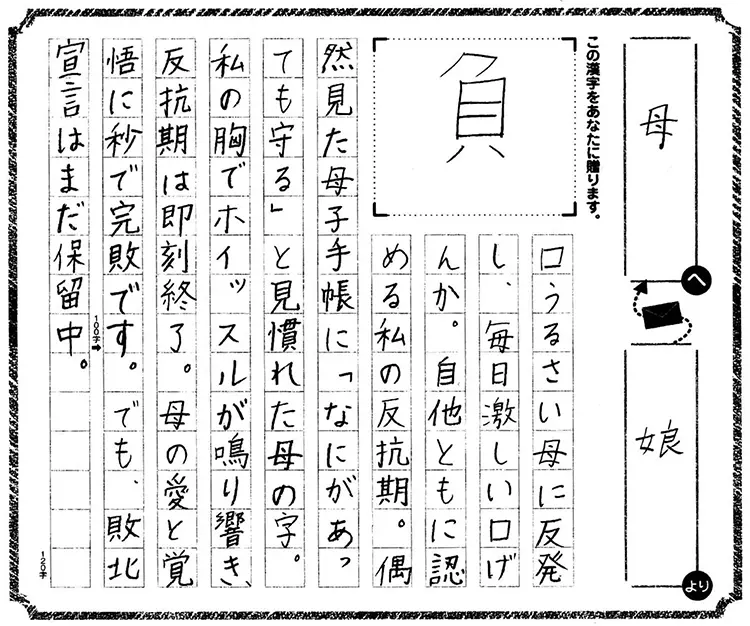 母
へ
娘
より
この漢字をあなたに贈ります。
負
口うるさい母に反発
し、毎日激しい口げ
んか。自他ともに認
める私の反抗期。偶
然見た母子手帳に「なにがあっ
ても守る」と見慣れた母の字。
私の胸でホイッスルが鳴り響き、
反抗期は即刻終了。母の愛と覚
悟に秒で完敗です。でも、敗北
宣言はまだ保留中。
100字
120字